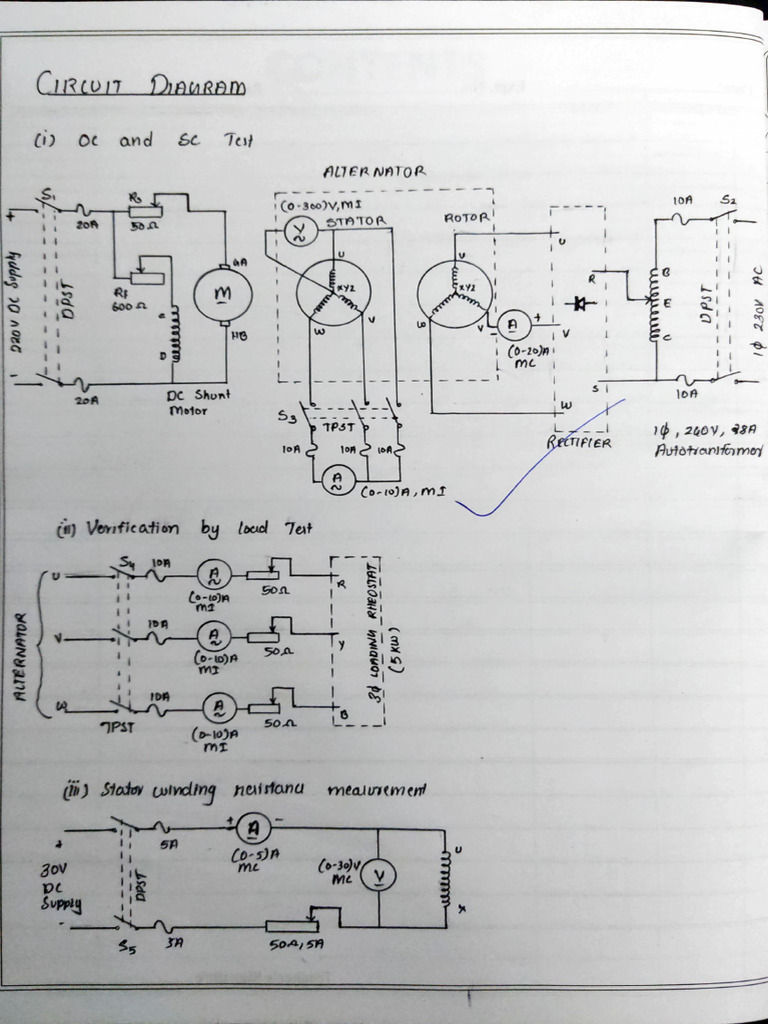 CIRCUIT DIAGRAM
(i) OC and SC Test
ALTERNATOR
S1
20A
R8
50Ω
(0-300)V, MI
V
STATOR
ROTOR
10A
S2
+
220V DC Supply
-
DPST
Rf
600Ω
C
D
M
GA
HB
DC Shunt
Motor
20A
U
XYZ
W
V
U
XYZ
W
V
A
- +
(0-20)A
MC
U
V
W
R
S
RECTIFIER
B
E
C
DPST
1ϕ 230V AC
10A
1ϕ, 240V, 28A
Autotransformer
S3
TPST
10A
10A
10A
A
(0-10)A, MI
(ii) Verification by load Test
ALTERNATOR
U
S4
10A
A
(0-10)A
MI
50Ω
R
V
10A
A
(0-10)A
MI
50Ω
Y
W
TPST
10A
A
(0-10)A
MI
50Ω
B
3ϕ LOADING RHEOSTAT
(5 KW)
(iii) Stator winding resistana mealurement
+
30V
DC
Supply
-
DPST
S5
5A
+ A -
(0-5)A
MC
(0-30)V
MC
V
U
X
3A
50Ω, 5A